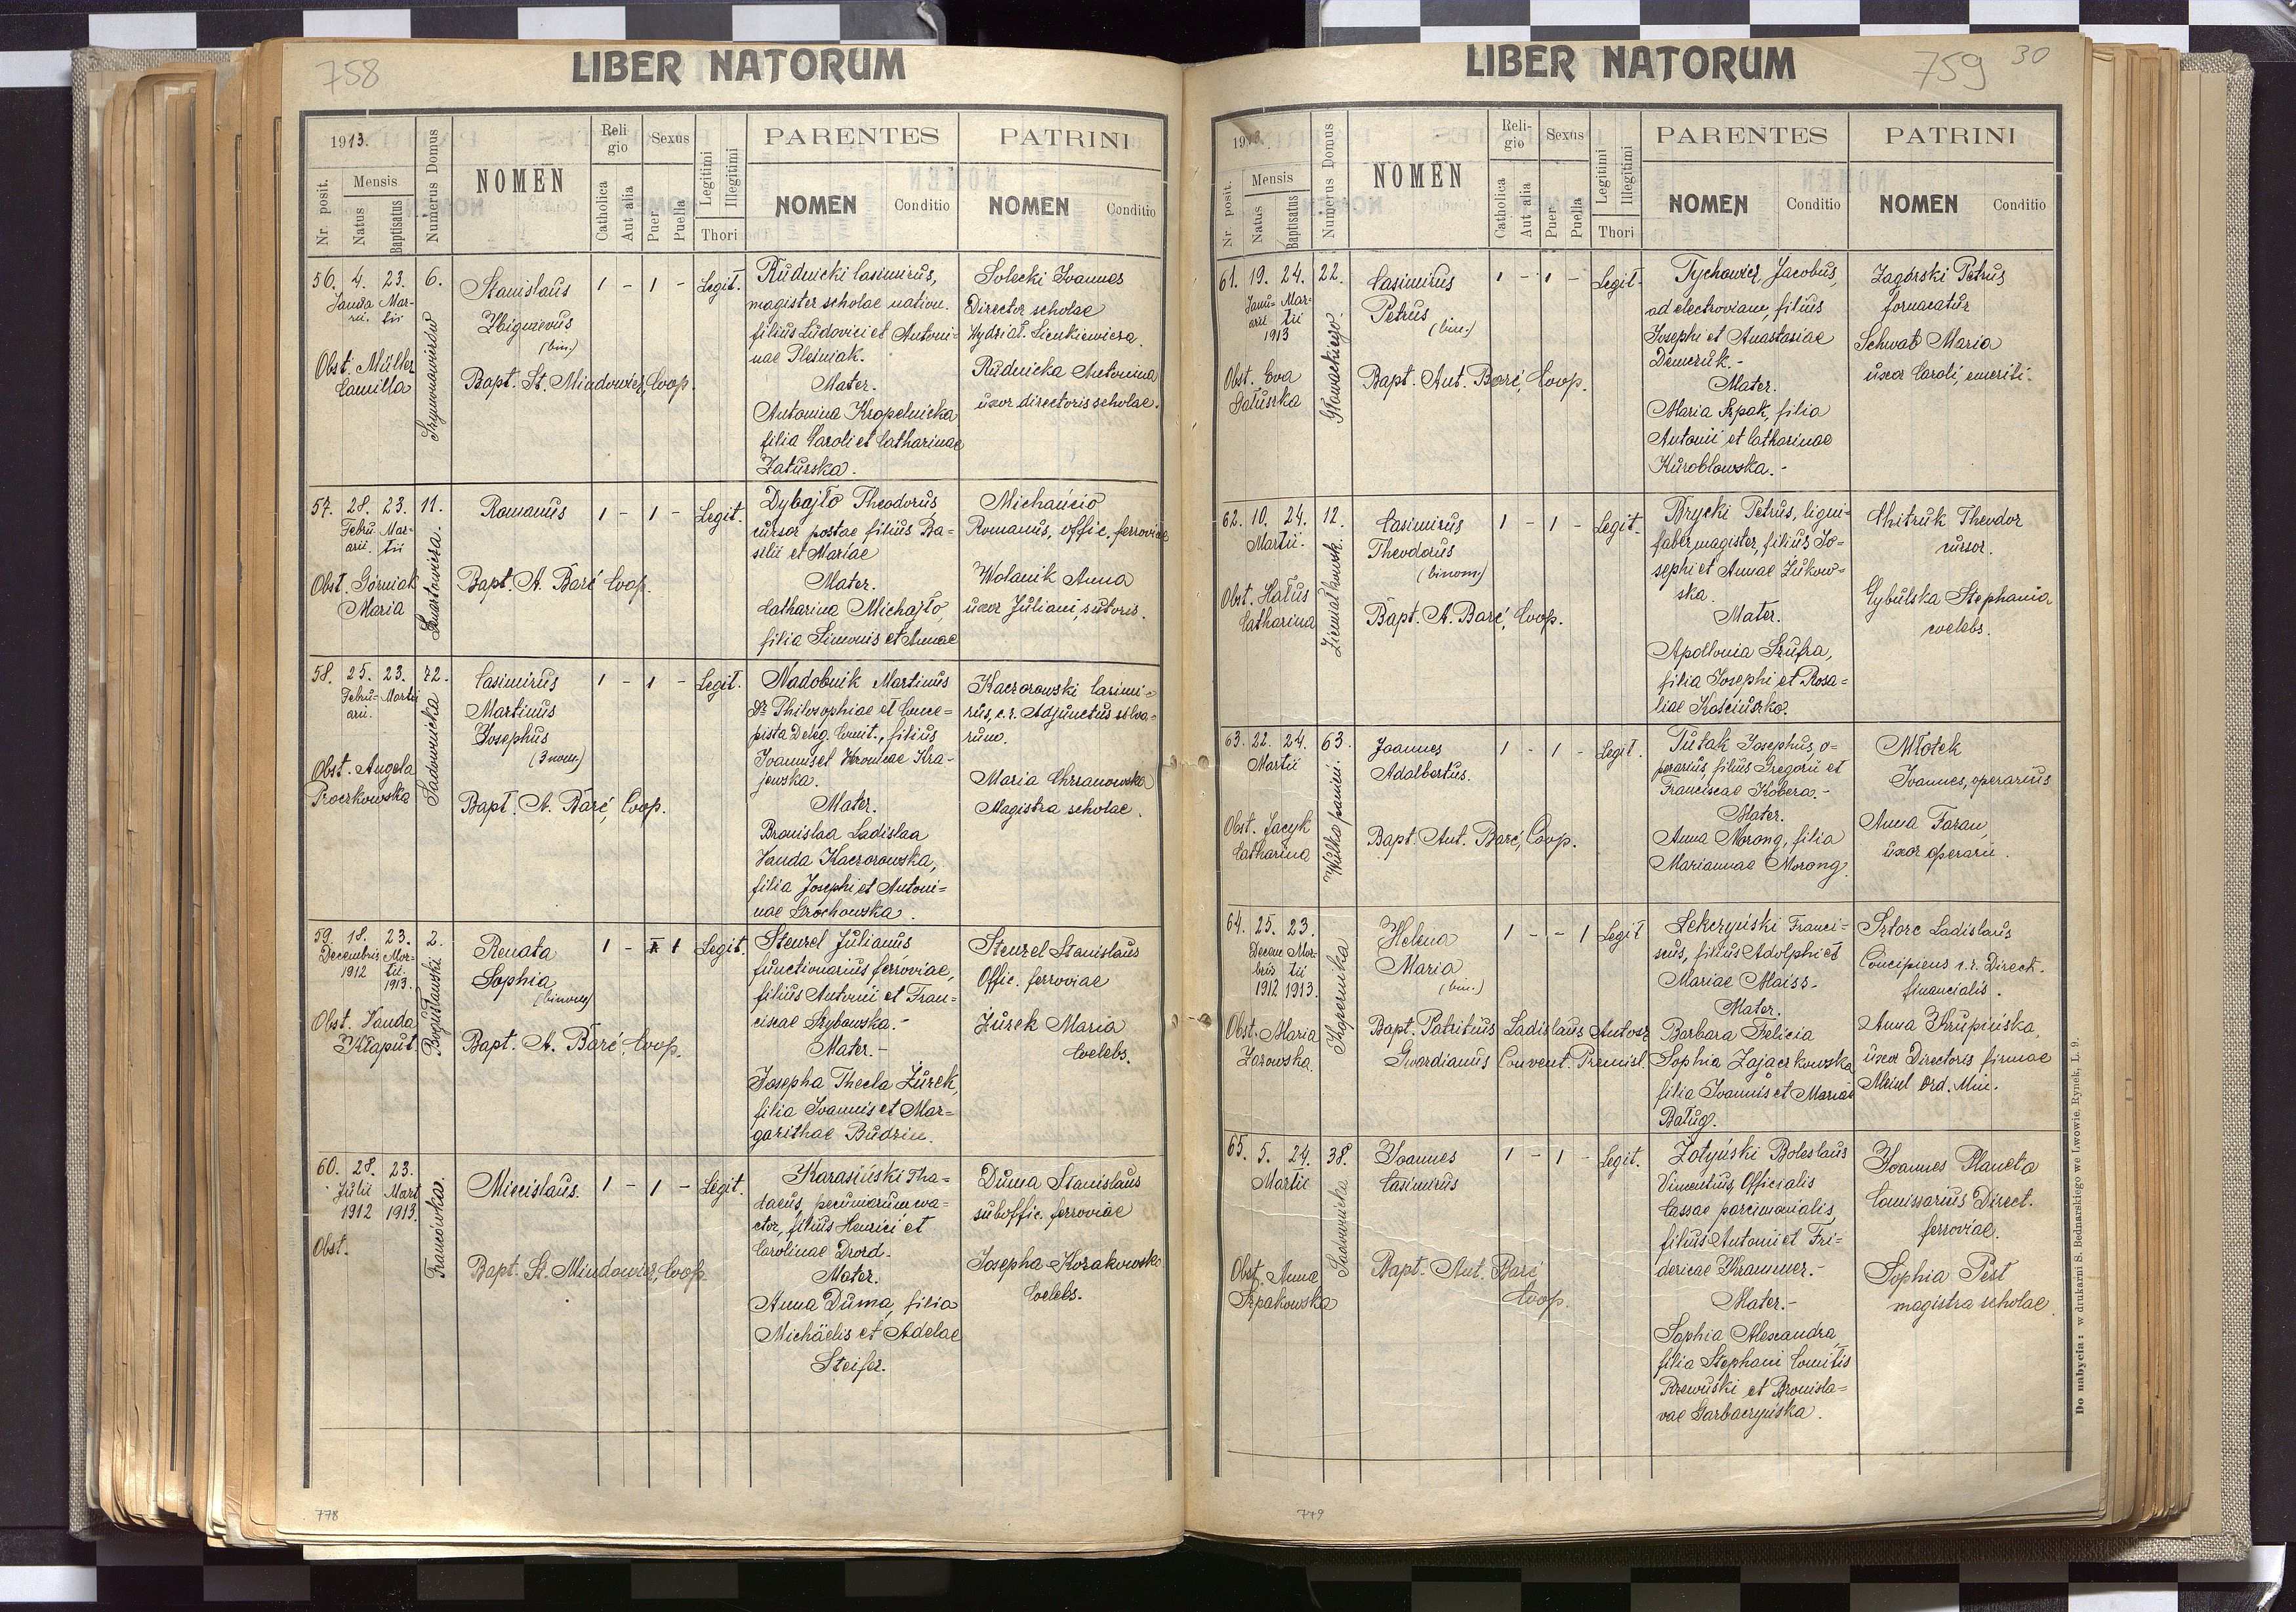 758
LIBER NATORUM
1913.
Nr. posit.
Mensis
Natus
Baptisatus
Numerus Domus
NOMEN
Religio
Catholica
Aut alia
Sexus
Puer
Puella
Legitimi
Illegitimi
Thori
PARENTES
NOMEN
Conditio
PATRINI
NOMEN
Conditio
56. 4. 23. 6.
Janua- Mar-
rii. tii
Szymonowiczów
Obst. Müller
Camilla
Stanislaus
Zbignevus
(bin.)
Bapt. St. Miodowicz, Coop.
1 - 1 - Legit.
Rudnicki Casimirus,
magister scholae nation.
filius Ludovici et Antoni-
nae Pleśniak.
Mater.
Antonina Kropelnicka
filia Caroli et Catharinae
Zaturska.
Solecki Joannes
Director scholae
Wydział. Sienkiewicza.
Rudnicka Antonina
uxor directoris scholae.
57. 28. 23. 11.
Febru- Mar-
arii. tii
Obst. Górniak
Maria
Romanus
Bapt. A. Barć Coop.
1 - 1 - Legit.
Dybajło Theodorus,
cursor postae filius Ba-
silii et Mariae
Mater.
Catharina Michajło,
filia Simonis et Annae
Michańcio
Romanus, offic. ferroviae
Wolanik Anna
uxor Juliani, sutoris.
58. 25. 23. 72.
Febru- Martii
arii.
Sadownicka
Obst. Angela
Proczkowska
Casimirus
Martinus
Josephus
(3 nom.)
Bapt. A. Barć, Coop.
1 - 1 - Legit.
Nadobnik Martinus
Dr Philosophiae et Conce-
pista Deleg. Comit., filius
Joannis et Veronicae Kra-
jewska.
Mater.
Bronislaa Ladislaa
Vanda Kaczorowska,
filia Josephi et Antoni-
nae Grochowska.
Kaczorowski Casimi-
rus, c.r. Adjunctus silva-
rum.
Maria Chrzanowska
Magistra scholae.
59. 18. 23. 2.
Decembris Mar-
1912 tii
1913.
Bogusławski
Obst. Vanda
Kłaput
Renata
Sophia
(binom)
Bapt. A. Barć, Coop.
1 - 1 Legit.
Stenzel Julianus
functionarius ferroviae,
filius Antonii et Fran-
ciscae Szybowska.-
Mater.-
Josepha Thecla Żurek,
filia Joannis et Mar-
garithae Budzin.
Stenzel Stanislaus
Offic. ferroviae
Żurek Maria
Coelebs.
60. 28. 23.
Julii Mart
1912 1913.
Francówka.
Obst.
Miecislaus.
Bapt. St. Miodowicz, Coop
1 - 1 - Legit.
Karasiński Tha-
daeus, pecuniarum exa-
ctor, filius Henrici et
Carolinae Drozd.
Mater.
Anna Duma, filia
Michäelis et Adelae
Steifer.
Duma Stanislaus
suboffic. ferroviae
Josepha Korakowska
Coelebs.
778
759 30
LIBER NATORUM
1913.
Nr posit.
Mensis
Natus
Baptisatus
Numerus Domus
NOMEN
Reli-gio
Catholica
Aut alia
Sexus
Puer
Puella
Legitimi
Illegitimi
Thori
PARENTES
NOMEN
Conditio
PATRINI
NOMEN
Conditio
61. 19. 24. 22.
Janu- Mar-
arii tii
1913
Słowackiego.
Obst. Eva
Gałuszka
Casimirus
Petrus
(bin.)
Bapt. Ant. Barć, Coop.
1 - 1 - Legit.
Tychowicz Jacobus,
ad electroviam, filius
Josephi et Anastasiae
Demczuk.-
Mater.
Maria Szpak, filia
Antonii et Catharinae
Kuroblowska.-
Zagórski Petrus
fornacatur
Schwab Maria
uxor Caroli, emeriti.
62. 10. 24. 12.
Martii.
Ziemiałkowsk.
Obst. Hałus
Catharina
Casimirus
Theodorus
(binom.)
Bapt. A. Barć, Coop.
1 - 1 - Legit.
Brycki Petrus, ligni-
faber magister, filius Jo-
sephi et Annae Żukow-
ska.
Mater.
Apollonia Szufra,
filia Josephi et Rosa-
liae Kościuszko.
Chitruk Theodor
cursor.
Cybulska Stephania
coelebs.
63. 22. 24. 63.
Martii
Wilko panieni.
Obst. Jacyk
Catharina
Joannes
Adalbertus.
Bapt. Ant. Barć, Coop.
1 - 1 - Legit.
Tutak Josephus, o-
perarius, filius Gregorii et
Franciscae Kobera.-
Mater.
Anna Morong, filia
Mariannae Morong.
Młotek
Joannes, operarius
Anna Faran,
uxor operarii.
64. 25. 23.
Decem- Mar-
bris tii
1912 1913.
Kopernika
Obst. Maria
Żarowska.
Helena
Maria
(bin.)
Bapt. Patritius Ladislaus Antosz
Gwardianus Convent. Premisl.
1 - - 1 Legit
Lekczyński Franci-
scus, filius Adolphi et
Mariae Maiss.
Mater.
Barbara Felicia
Sophia Zajączkowska
filia Joannis et Mariae
Baług.
Sztorc Ladislaus
Concipiens c.r. Direct.
financialis.
Anna Krupińska,
uxor Directoris firmae
Meinl Ord. Min.
65. 5. 24. 38.
Martii
Sadownicka
Obst. Anna
Szpakowska
Joannes
Casimirus
Bapt. Ant. Barć
Coop.
1 - 1 - Legit.
Żotyński Boleslaus
Vincentius, Officialis
Cassae parcimonialis,
filius Antoni et Fri-
dericae Krammer.-
Mater.-
Sophia Alexandra,
filia Stephani Comitis
Rzewuski et Bronisla-
vae Garbaczyńska.
Joannes Planeta
Comissarius Direct.
ferroviae.
Sophia Pest
magistra scholae
Do nabycia: w drukarni S. Bednarskiego we Lwowie. Rynek, L. 9.
779